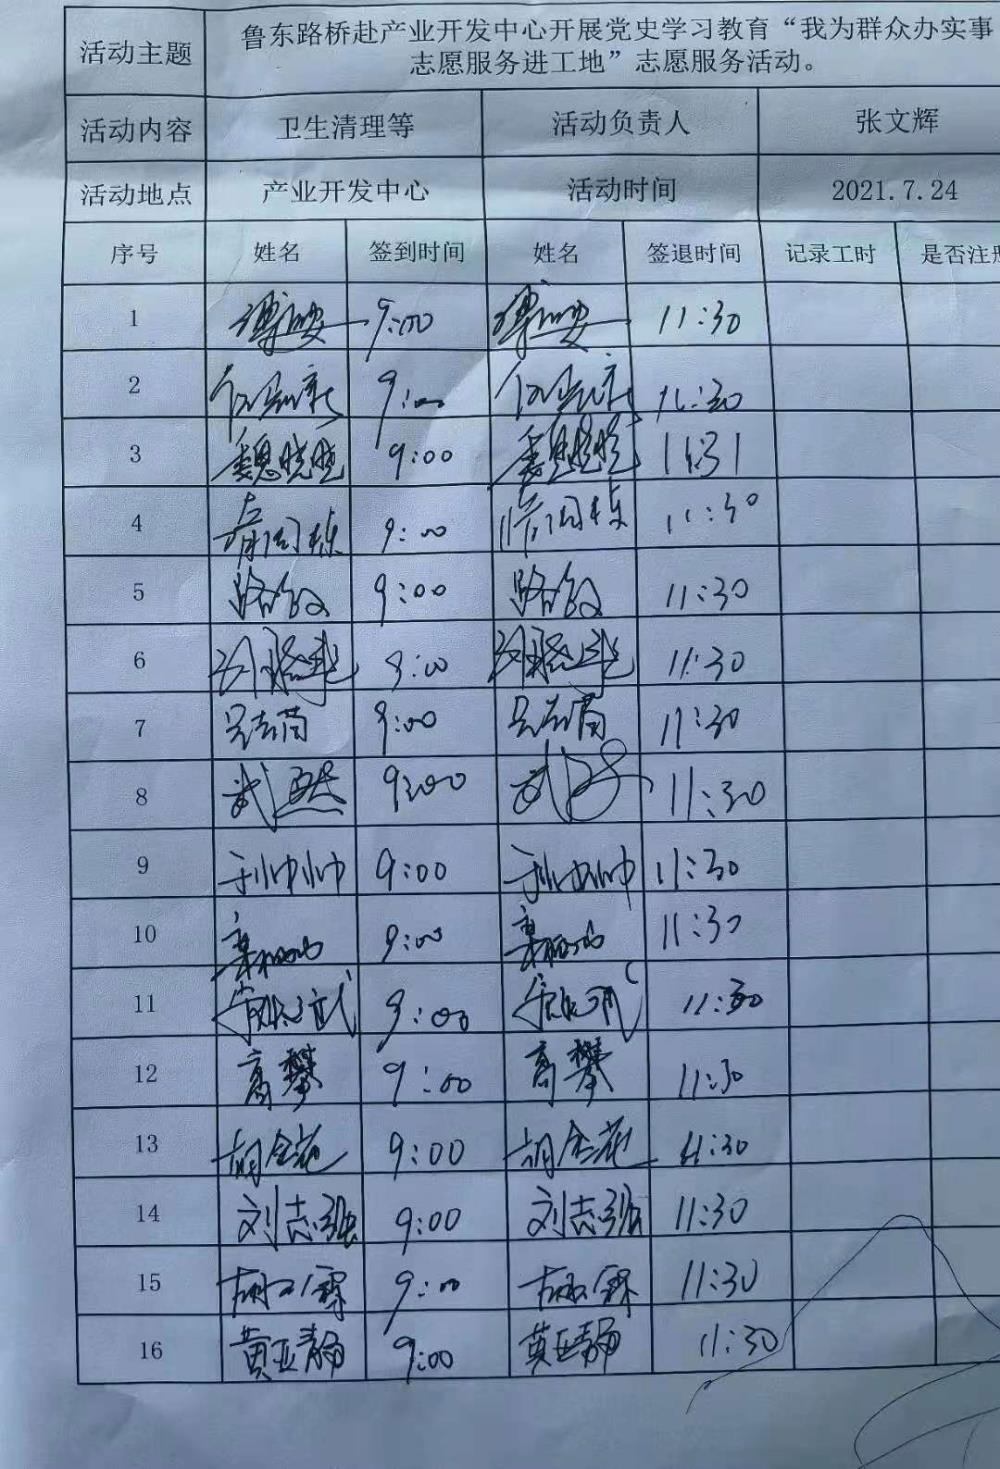 活动主题 鲁东路桥赴产业开发中心开展党史学习教育“我为群众办实事
志愿服务进工地”志愿服务活动。
活动内容 卫生清理等 活动负责人 张文辉
活动地点 产业开发中心 活动时间 2021.7.24
序号 姓名 签到时间 姓名 签退时间 记录工时 是否注册
1 9:00 11:30
2 9:00 11:30
3 魏晓晓 9:00 魏晓晓 11:31
4 9:00 11:30
5 路敏 9:00 路敏 11:30
6 9:00 11:30
7 9:00 11:30
8 武 9:00 武 11:30
9 于帅帅 9:00 于帅帅 11:30
10 9:00 11:30
11 9:00 11:30
12 高攀 9:00 高攀 11:30
13 胡金花 9:00 胡金花 11:30
14 刘志强 9:00 刘志强 11:30
15 9:00 11:30
16 黄亚静 9:00 黄亚静 11:30